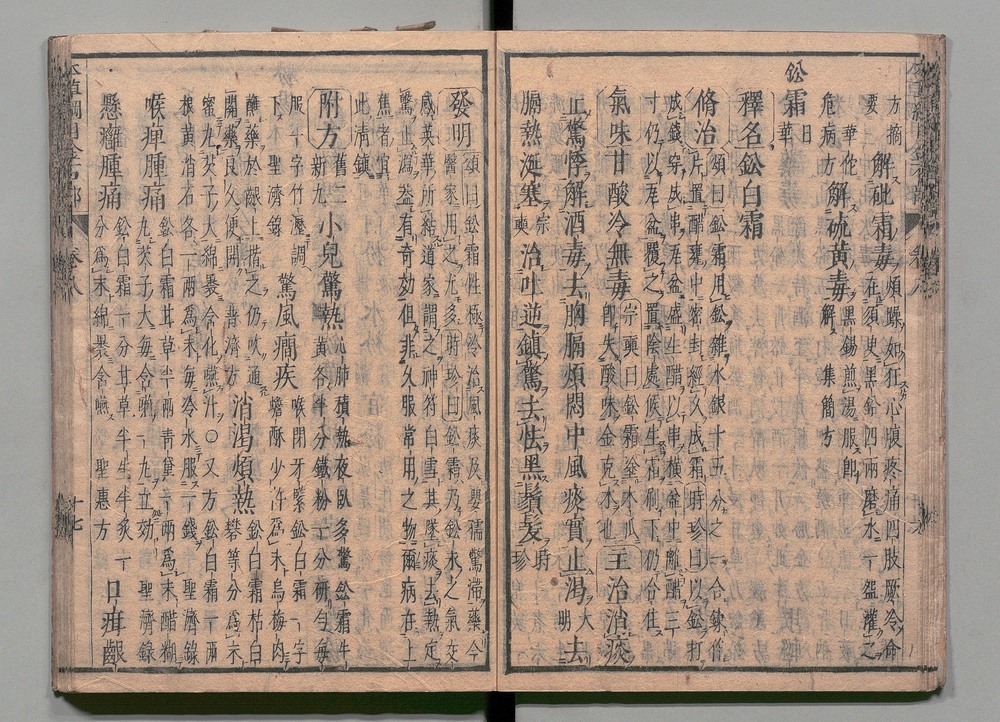 方摘要 解砒霜毒 煩躁如狂心腹疼痛四肢厥冷命在須臾黑鉛四兩磨水一盌灌之
華佗危病方 解硫黃毒 黑錫煎湯服即解 集簡方
鉛霜 日華
釋名鉛白霜
脩治 頌曰鉛霜用鉛雜水銀十五分之一合鍊作片置醋甕中密封經久成霜時珍曰以鉛打成錢穿成串瓦盆盛生醋以串橫盆中離醋三寸仍以瓦盆覆之置陰處候生霜刷下仍合住
氣味甘酸冷無毒 宗奭曰鉛霜塗木瓜即失酸味金克水也 主治消痰
止驚悸解酒毒去胸膈煩悶中風痰實止渴 大明 去
膈熱涎塞 宗奭 治吐逆鎮驚去怯黑鬚髮 時珍
發明 頌曰鉛霜性極冷治風痰及嬰孺驚滯藥今醫家用之尤多時珍曰鉛霜乃鉛汞之氣交感英華所結道家謂之神符白雪其墜痰去熱定驚止瀉蓋有奇効但非久服常用之物爾病在上焦者宜此清鎮
附方 舊二新九 小兒驚熱 心肺積熱夜臥多驚鉛霜牛黃各半分鐵粉一分研勻每服一字竹瀝調下 聖濟錄
驚風癇疾 喉閉牙緊鉛白霜一字蟾酥少許爲末烏梅肉蘸藥於齦上揩之仍吹通關藥良久便開 普濟方
消渴煩熱 鉛白霜枯白礬等分爲末蜜丸芡子大綿裹含化嚥汁○又方鉛白霜一兩根黃消石各一兩爲末每冷水服一錢 聖濟錄
喉痺腫痛 鉛白霜甘草半兩青黛一兩爲末醋糊丸芡子大每含嚥一丸立効 聖濟錄
懸癰腫痛 鉛白霜一分甘草半生半炙一分爲末綿裹含嚥 聖惠方
口疳齦